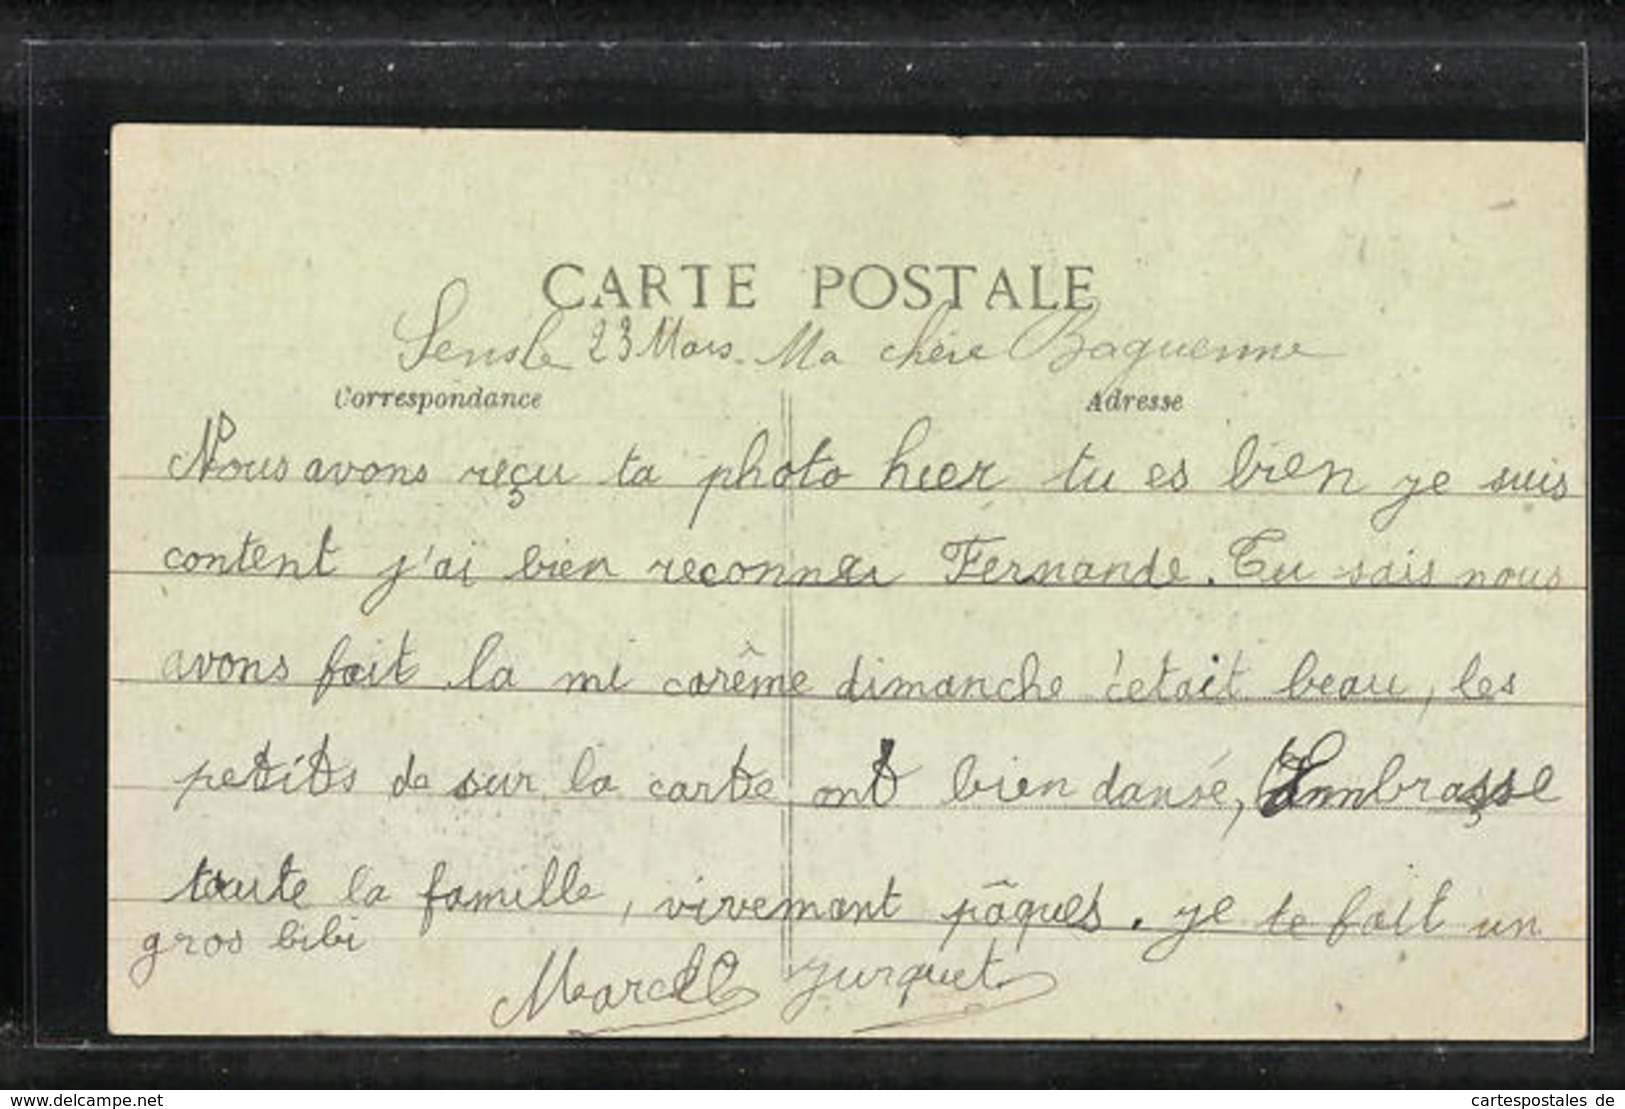 CARTE POSTALE
Sens le 23 Mars. Ma chère Baguenne
Correspondance Adresse
Nous avons reçu ta photo hier tu es bien je suis
content j'ai bien reconnu Fernande. Tu sais nous
avons fait la mi carême dimanche c'etait beau, les
petits de sur la carte ont bien dansé, Embrasse
toute la famille, vivemant pâques. je te fait un
gros bibi
Marcel Jurquet
www.delcampe.net cartespostales de